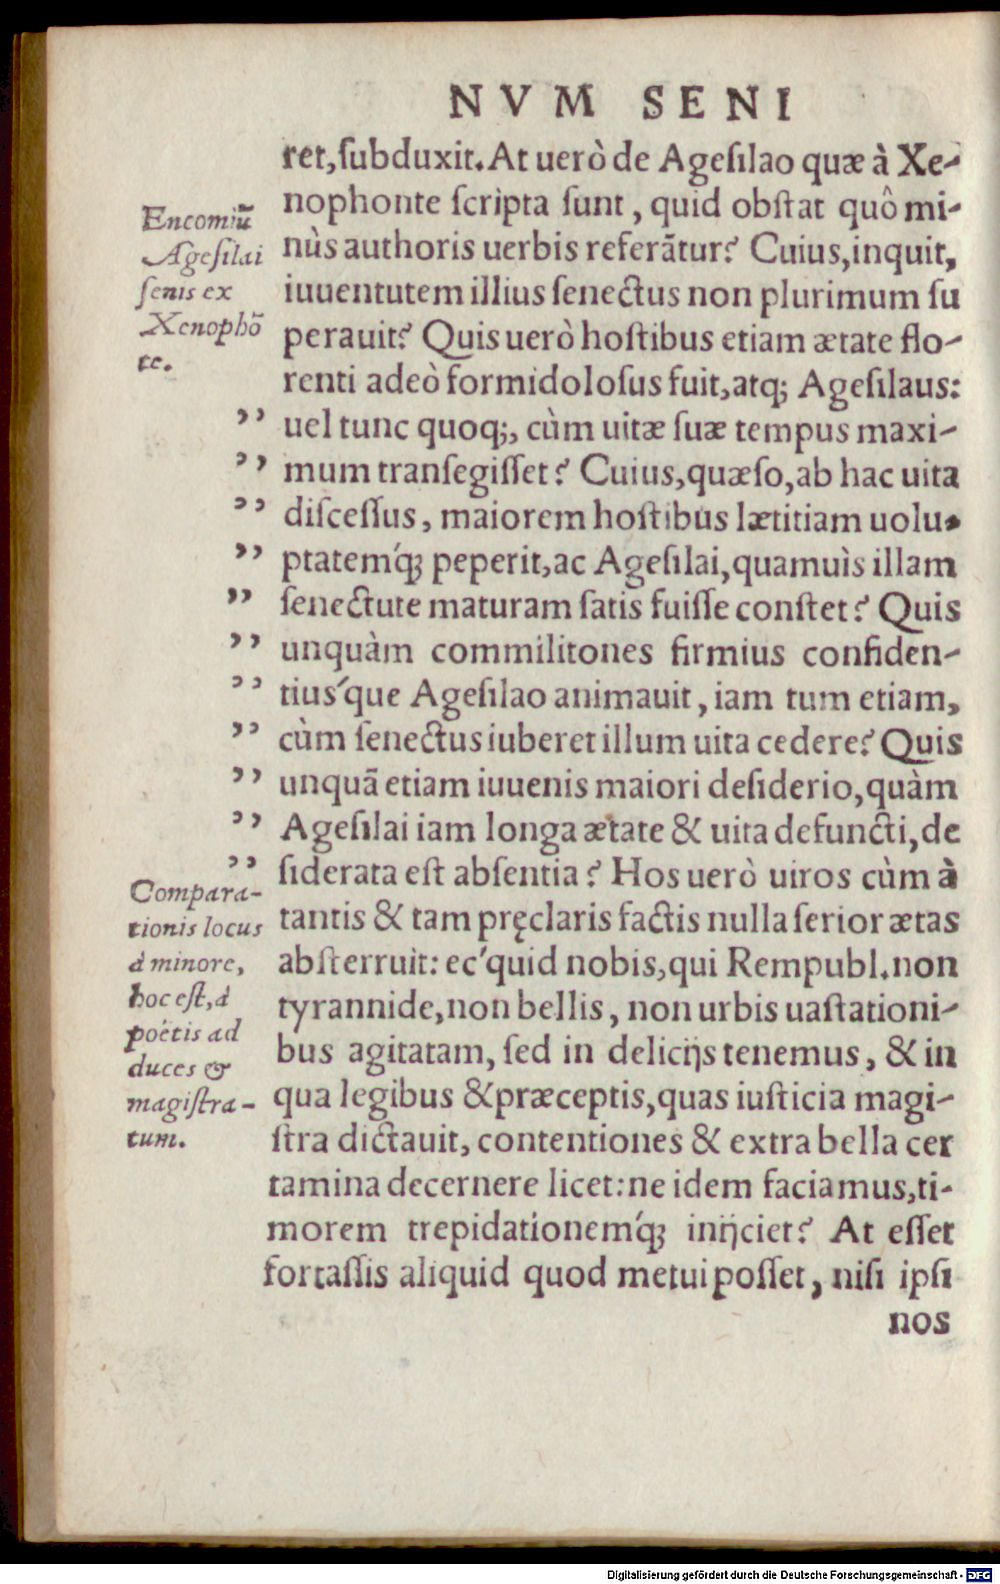 NVM SENI
ret, ſubduxit. At uerò de Ageſilao quæ à Xe-
nophonte ſcripta ſunt, quid obſtat quô mi-
nùs authoris uerbis referãtur? Cuius, inquit,
iuuentutem illius ſenectus non plurimum ſu
perauit? Quis uerò hoſtibus etiam ætate flo-
renti adeò formidoloſus fuit, atq; Ageſilaus:
uel tunc quoq;, cùm uitæ ſuæ tempus maxi-
mum transegiſſet? Cuius, quæſo, ab hac uita
diſceſſus, maiorem hoſtibus lætitiam uolu-
ptateḿq; peperit, ac Ageſilai, quamuìs illam
ſenectute maturam ſatis fuiſſe conſtet? Quis
unquàm commilitones firmius confiden-
tius´que Ageſilao animauit, iam tum etiam,
cùm ſenectus iuberet illum uita cedere? Quis
unquã etiam iuuenis maiori deſiderio, quàm
Ageſilai iam longa ætate & uita defuncti, de
ſiderata eſt abſentia? Hos uerò uiros cùm à
tantis & tam pręclaris factis nulla ſerior ætas
abſterruit: ec´quid nobis, qui Rempubl. non
tyrannide, non bellis, non urbis uaſtationi-
bus agitatam, ſed in delicijs tenemus, & in
qua legibus & præceptis, quas iuſticia magi-
ſtra dictauit, contentiones & extra bella cer
tamina decernere licet: ne idem faciamus, ti-
morem trepidationeḿq; inijciet? At eſſet
fortaſſis aliquid quod metui poſſet, niſi ipſi
nos
Encomiũ
Ageſilai
ſenis ex
Xenophõ
te.
”
”
”
”
”
”
”
”
”
”
”
Compara-
tionis locus
à minore,
hoc eſt, à
poëtis ad
duces &
magiſtra-
tum.
Digitalisierung gefördert durch die Deutsche Forschungsgemeinschaft - DFG